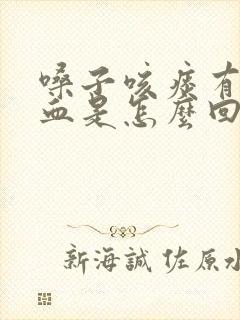 嗓子咳痰有
血是怎麼回
新海誠 佐原水